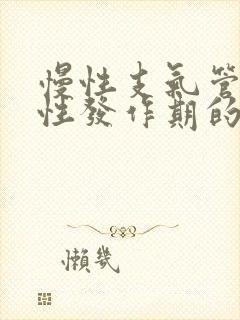 慢性支氣管
性發作期的
懶幾